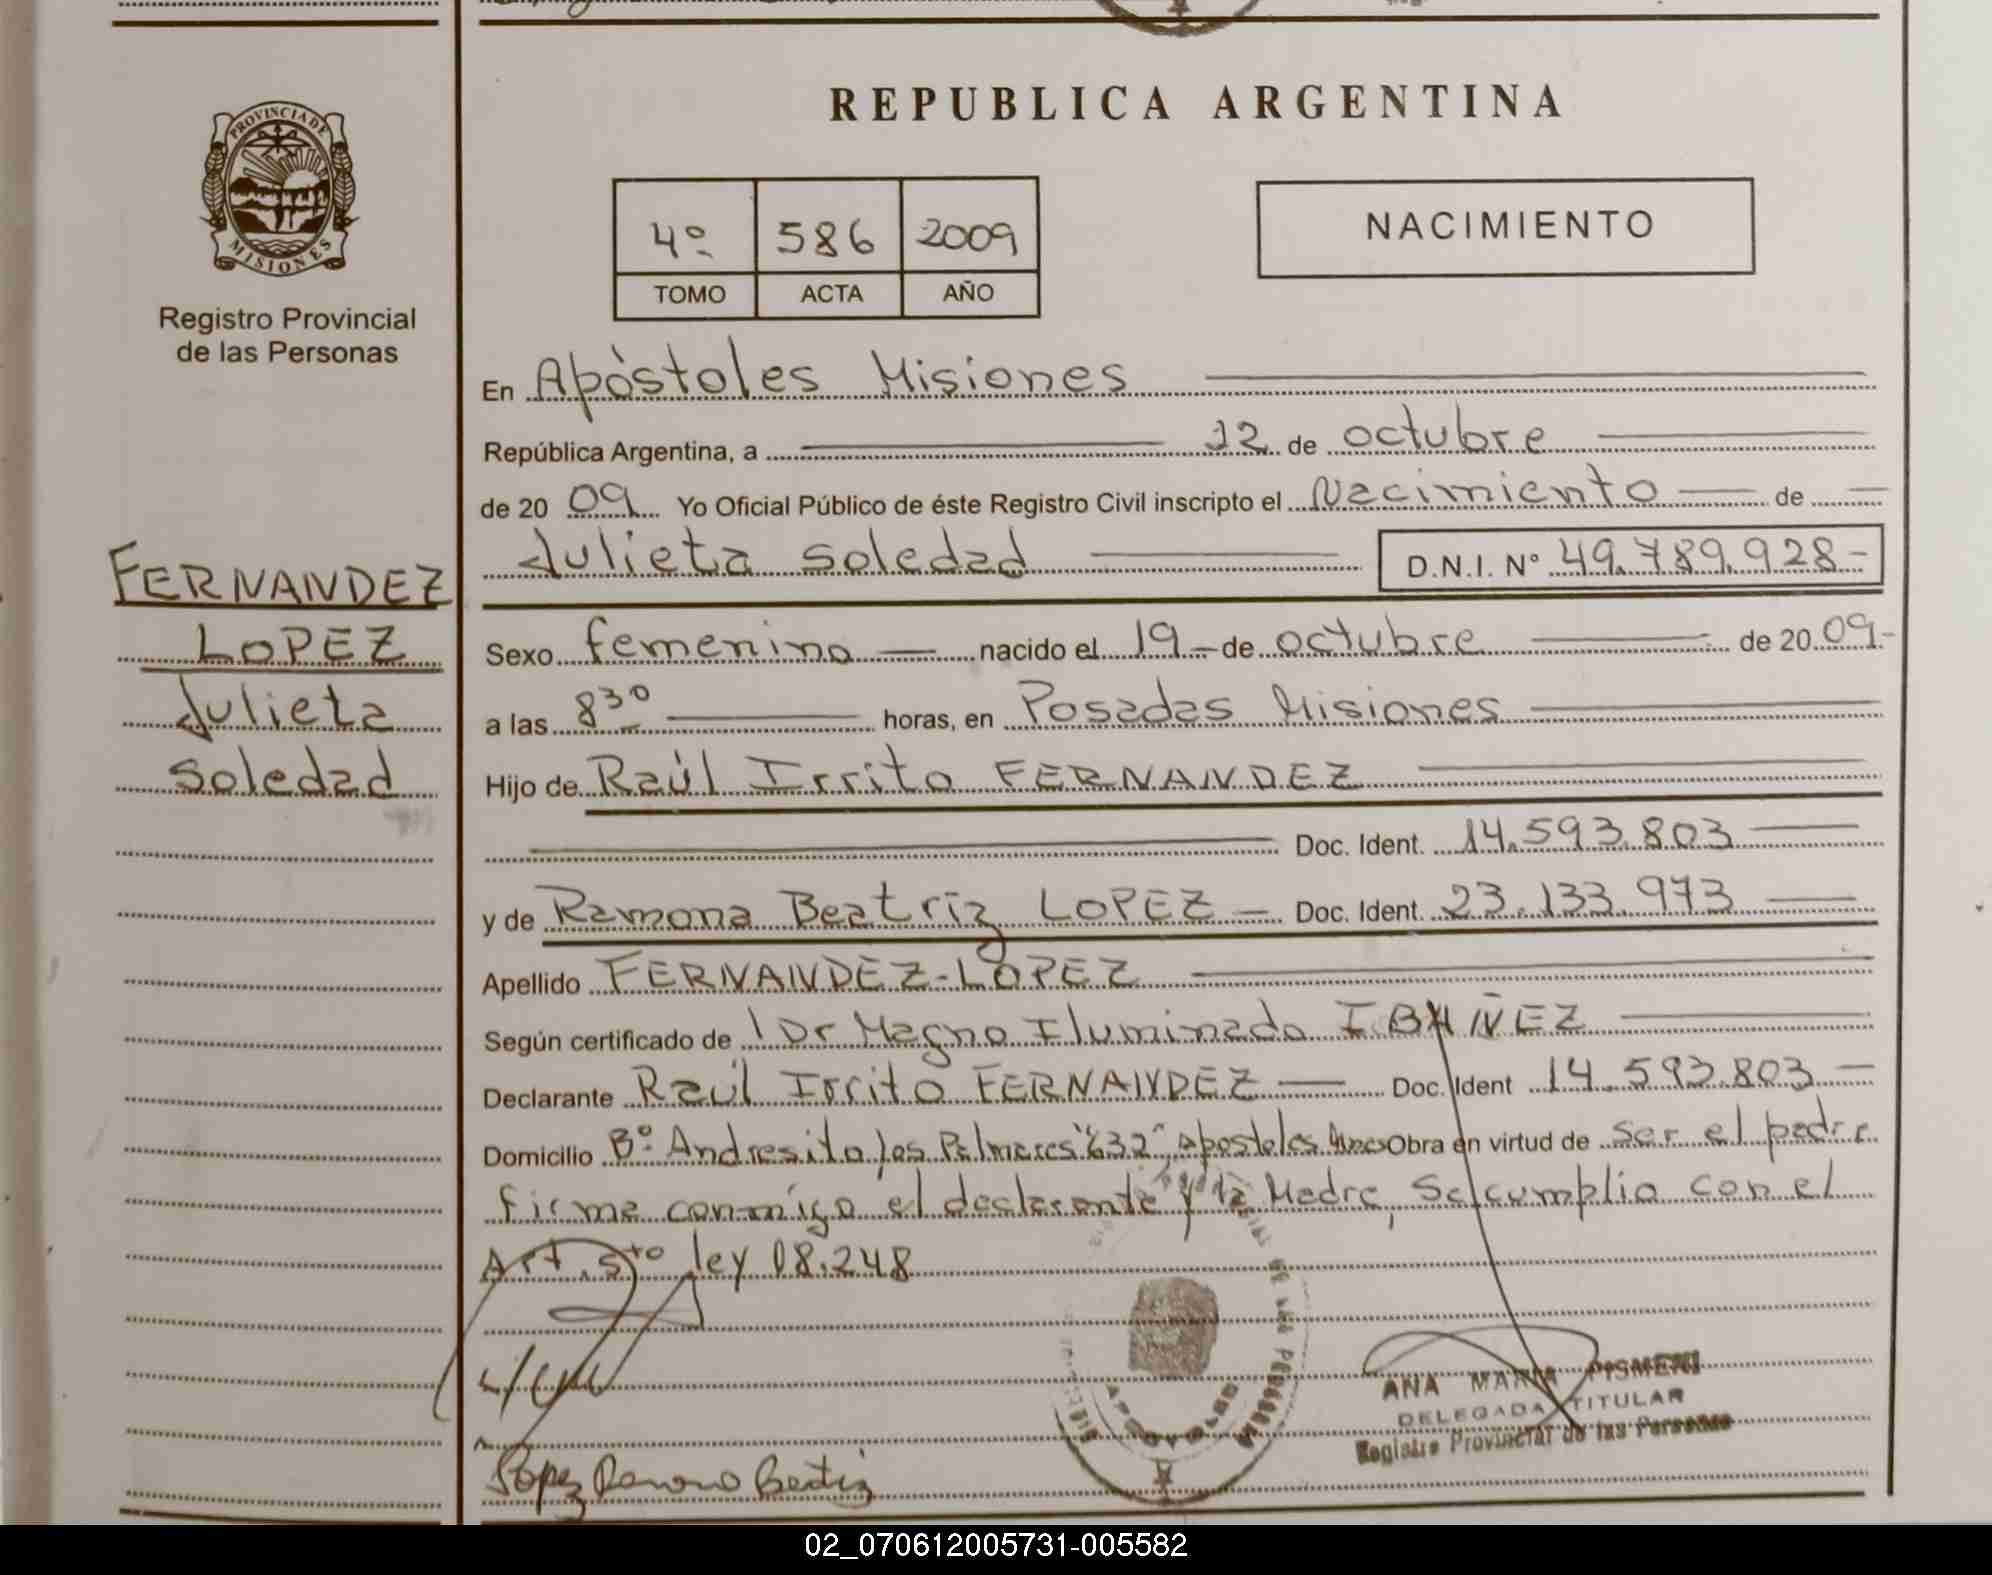 PROVINCIA DE
MISIONES
Registro Provincial
de las Personas
FERNANDEZ
LOPEZ
Julieta
Soledad
REPUBLICA ARGENTINA
4º 586 2009
TOMO ACTA AÑO
NACIMIENTO
En Apóstoles Misiones
República Argentina, a 22 de octubre
de 2009 Yo Oficial Público de éste Registro Civil inscripto el Nacimiento de
Julieta Soledad D.N.I. Nº 49.789.928-
Sexo femenino nacido el 19 de octubre de 2009-
a las 8³⁰ horas, en Posadas Misiones
Hijo de Raúl Irrito FERNANDEZ
Doc. Ident. 14.593.803
y de Ramona Beatriz LOPEZ Doc. Ident. 23.133.973
Apellido FERNANDEZ-LOPEZ
Según certificado de Dr Magno Iluminado IBAÑEZ
Declarante Raúl Irrito FERNANDEZ Doc. Ident 14.593.803
Domicilio Bº Andresito los Palmares "632", Apostoles Obra en virtud de ser el padre
firma conmigo el declarante y la Madre, Se cumplio con el
Art. 5to ley 18.248
Lopez Ramona Beatriz
APOSTOLES
ANA MARIA PISMENI
DELEGADA TITULAR
Registro Provincial de las Personas
02_070612005731-005582